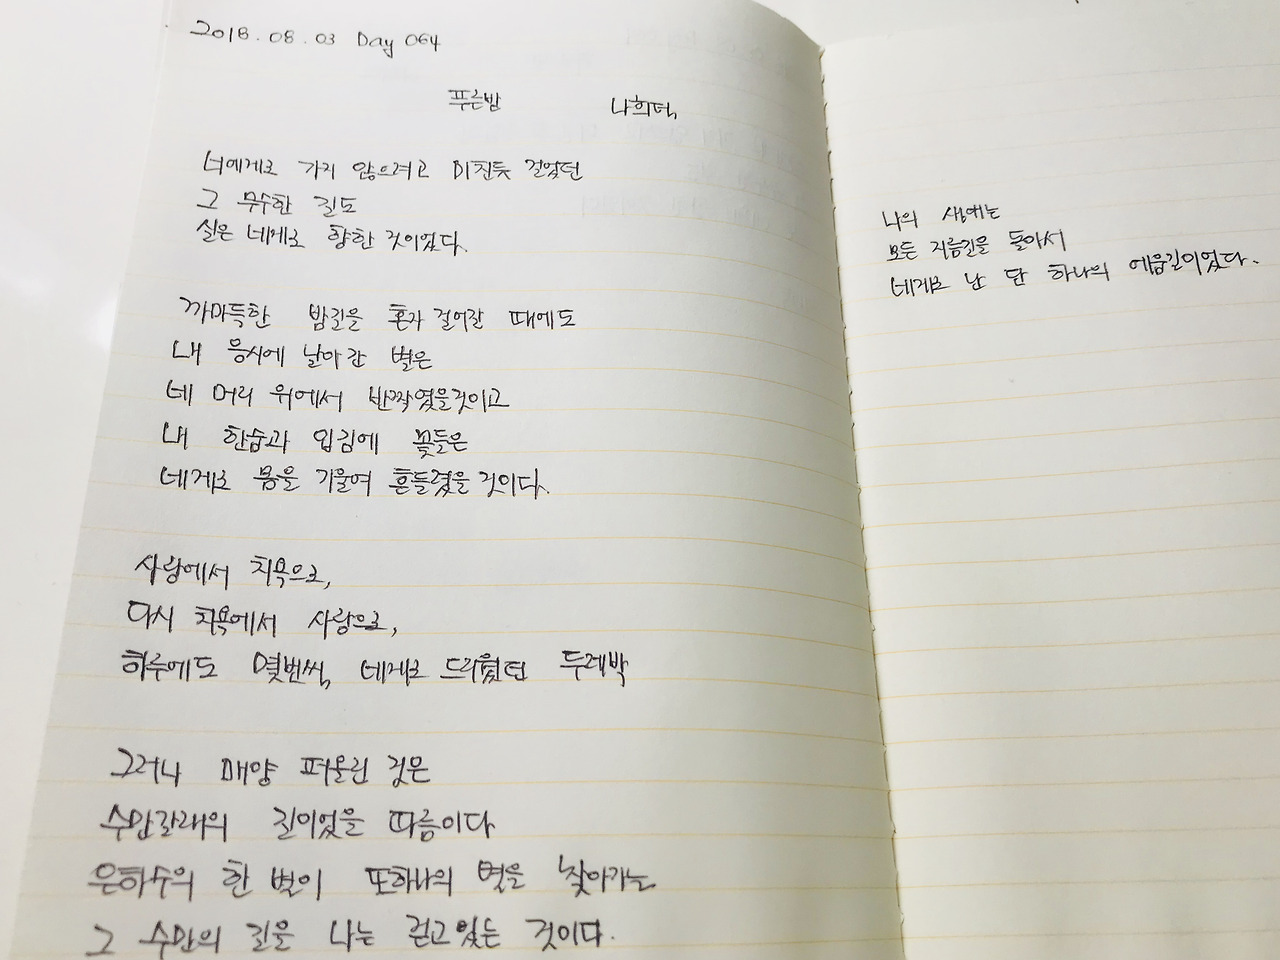 2018.08.03 Day 064
푸른밤 나희덕
너에게로 가지 않으려고 미친듯 걸었던
그 무수한 길도
실은 네게로 향한 것이었다.
까마득한 밤길을 혼자 걸어갈 때에도
내 응시에 날아간 별은
네 머리 위에서 반짝였을것이고
내 한숨과 입김에 꽃들은
네게로 몸을 기울여 흔들렸을 것이다.
사랑에서 치욕으로,
다시 치욕에서 사랑으로,
하루에도 몇번씩 네게로 드리웠던 두레박
그러나 매양 퍼올린 것은
수만갈래의 길이었을 따름이다
은하수의 한 별이 또하나의 별을 찾아가는
그 수만의 길을 나는 걷고있는 것이다.
나의 생애는
모든 지름길을 돌아서
네게로 난 단 하나의 에움길이었다.